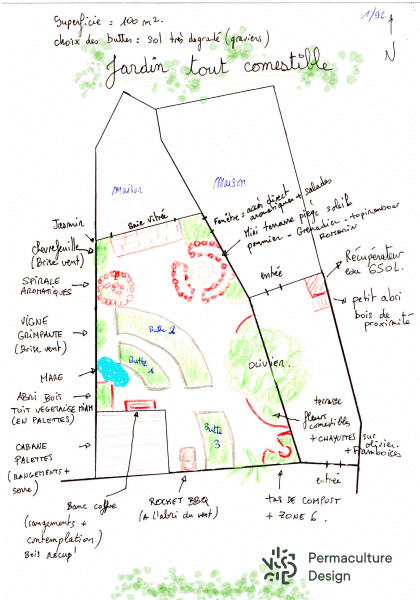 Superficie = 100 m².
choix des buttes = sol très dégradé (graviers)
1/92
N
Jardin tout comestible
maison
Maison
Jasmin
Baie vitrée
Fenêtre = accès direct
aromatiques + salades
Mini terrasse piège soleil
pommier - Grenadier - topinambour
Romarin
Chèvrefeuille
(Brise vent)
SPIRALE
AROMATIQUES
entrée
Récupérateur
eau 650L.
petit abri
bois de
proximité
VIGNE
GRIMPANTE
(Brise vent)
Butte 2
Butte 1
olivier.
MARE
ABRI BOIS
TOIT VEGETALISE
(EN PALETTES)
terrasse
fleurs
comestibles
+ CHAYOTTES sur
olivier.
+ Framboises
CABANE
PALETTES
(RANGEMENTS +
serre)
Butte
3
entrée
Banc coffre
(rangements +
contemplation)
Bois récup'
ROCKET BBQ
(A l'abri du vent)
TAS DE COMPOST
+ ZONE 6.
Permaculture
Design